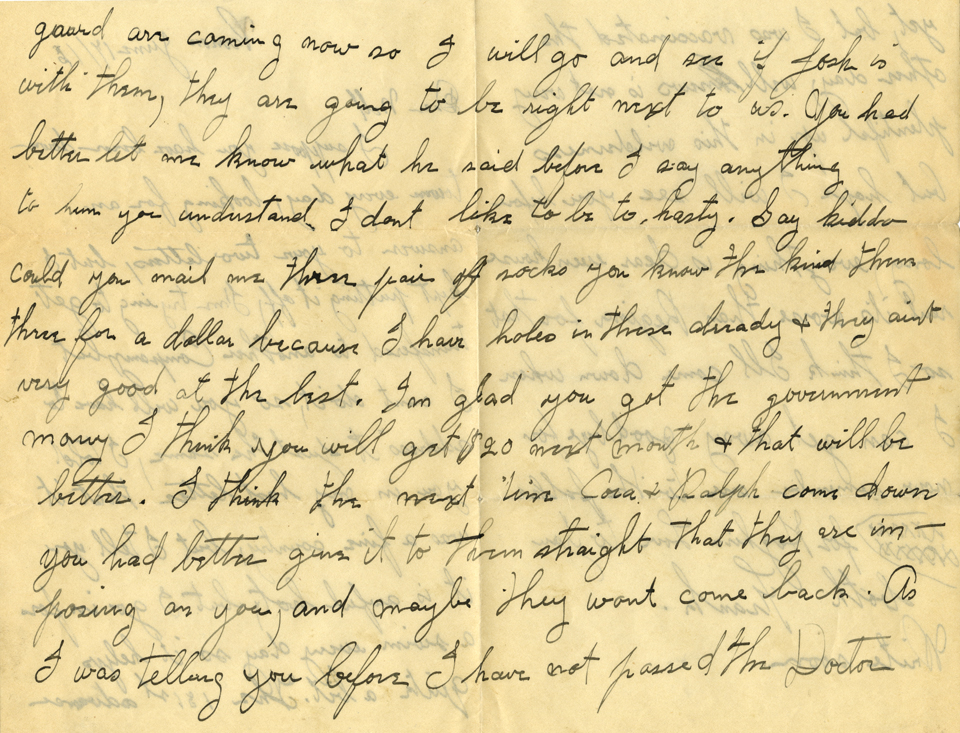 guard are coming now so I will go and see if Josh is
with them, they are going to be right next to us. You had
better let me know what he said before I say anything
to him you understand, I dont like to be to hasty. Say kiddo
could you mail me three pair of socks you know the kind them
three for a dollar because I have holes in these already & they aint
very good at the best. I'm glad you got the government
money I think you will get $20 next month & that will be
better. I think the next time Cora & Ralph come down
you had better give it to them straight that they are im-
posing on you, and maybe they wont come back. As
I was telling you before, I have not passed the Doctor